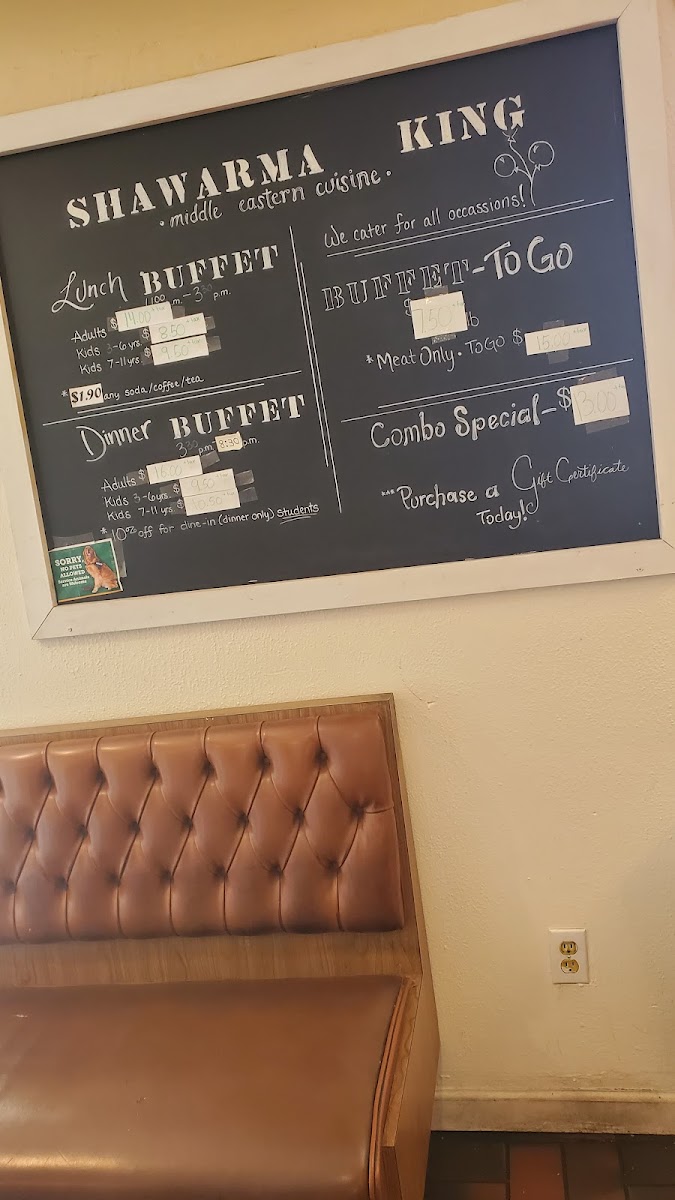 SHAWARMA KING
• middle eastern cuisine •
Lunch BUFFET
11:00 a.m. - 3:30 p.m.
Adults $ 14.00 + tax
Kids 3-6 yrs. $ 8.50 + tax
Kids 7-11 yrs. $ 9.50 + tax
* $1.90 any soda/coffee/tea
Dinner BUFFET
3:30 p.m. 8:30 p.m.
Adults $ 16.00
Kids 3-6 yrs. $ 9.50
Kids 7-11 yrs. $ 10.50
* 10% off for dine-in (dinner only) students
We cater for all occassions!
BUFFET-To Go
$ 7.50 lb
* Meat Only • TO GO $ 15.00
Combo Special - $ 13.00
*** Purchase a Gift Certificate
Today!
SORRY,
NO PETS
ALLOWED
Service Animals
are Welcome